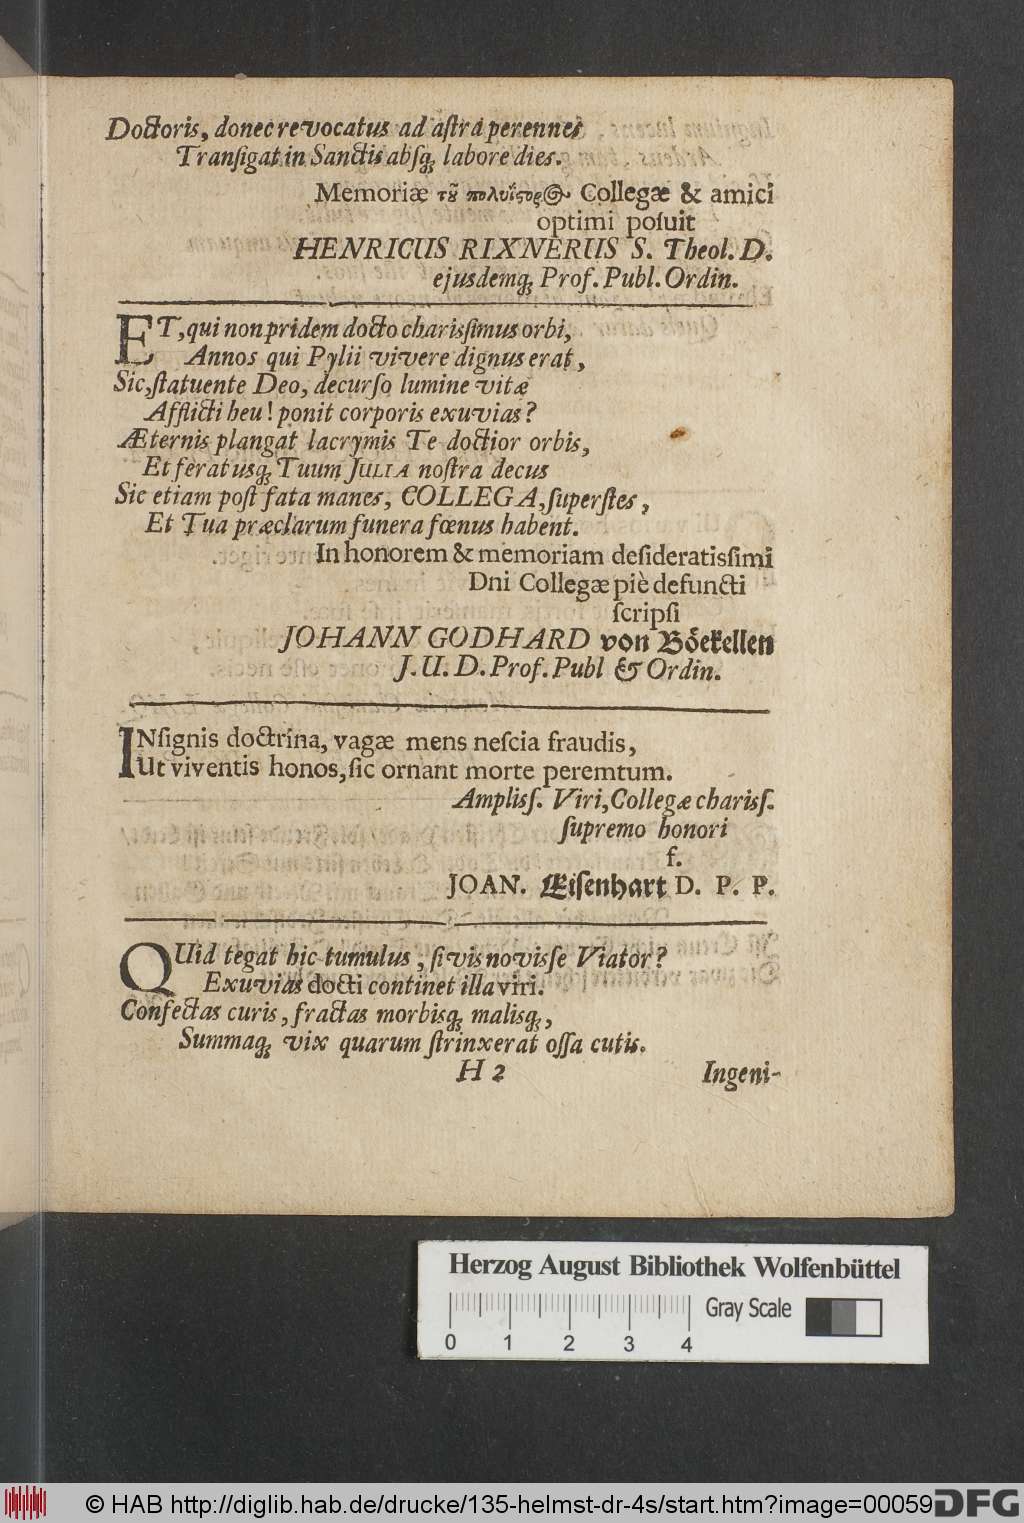 Doctoris, donec revocatus ad aſtra perennes
Tranſigat in Sanctis abſq; labore dies.
Memoriæ τȣ͂ πολυΐςορ@ Collegæ & amici
optimi poſuit
HENRICUS RIXNERUS S. Theol. D.
ejusdemq; Prof. Publ. Ordin.
ET, qui non pridem docto charisſimus orbi,
Annos qui Pylii vivere dignus erat,
Sic, ſtatuente Deo, decurſo lumine vitæ
Afflicti heu! ponit corporis exuvias?
Æternis plangat lacrymis Te doctior orbis,
Et ferat usq; Tuum JULIA noſtra decus
Sic etiam poſt fata manes, COLLEGA, ſuperſtes,
Et Tua præclarum funera fœnus habent.
In honorem & memoriam deſideratisſimi
Dni Collegæ piè defuncti
ſcripſi
JOHANN GODHARD von Böckellen
J. U. D. Prof. Publ & Ordin.
INſignis doctrina, vagæ mens neſcia fraudis,
Ut viventis honos, ſic ornant morte peremtum.
Ampliſſ. Viri, Collegæ chariſſ.
ſupremo honori
f.
JOAN. Eiſenhart D. P. P.
QUid tegat hic tumulus, ſi vis novisſe Viator?
Exuvias docti continet illa viri.
Confectas curis, fractas morbisq; malisq;,
Summaq; vix quarum ſtrinxerat oſſa cutis.
H 2
Ingeni-
Herzog August Bibliothek Wolfenbüttel
Gray Scale
0 1 2 3 4
© HAB http://diglib.hab.de/drucke/135-helmst-dr-4s/start.htm?image=00059
DFG